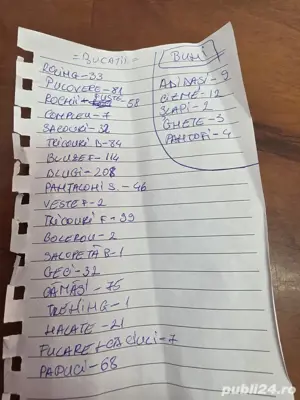 = BUCĂȚI =
ROCHII - 33
PULOVERE - 81
ROCHII + FUSTE - 58
COMPLEU - 7
SACOURI - 32
TRICOURI B - 84
BLUZE F - 114
BLUGI - 208
PANTALONI S. - 46
VESTE F - 2
TRICOURI F - 99
BOLEROU - 2
SALOPETĂ B - 1
GECI - 32
CĂMĂȘI - 75
TRENING - 1
HALATE - 21
FULARE + CĂCIULI - 7
PAPUCI - 68
BUNI
ADIDAȘI - 9
CIZME - 12
ȘLAPI - 2
GHETE - 3
PANTOFI - 4
publi24.ro